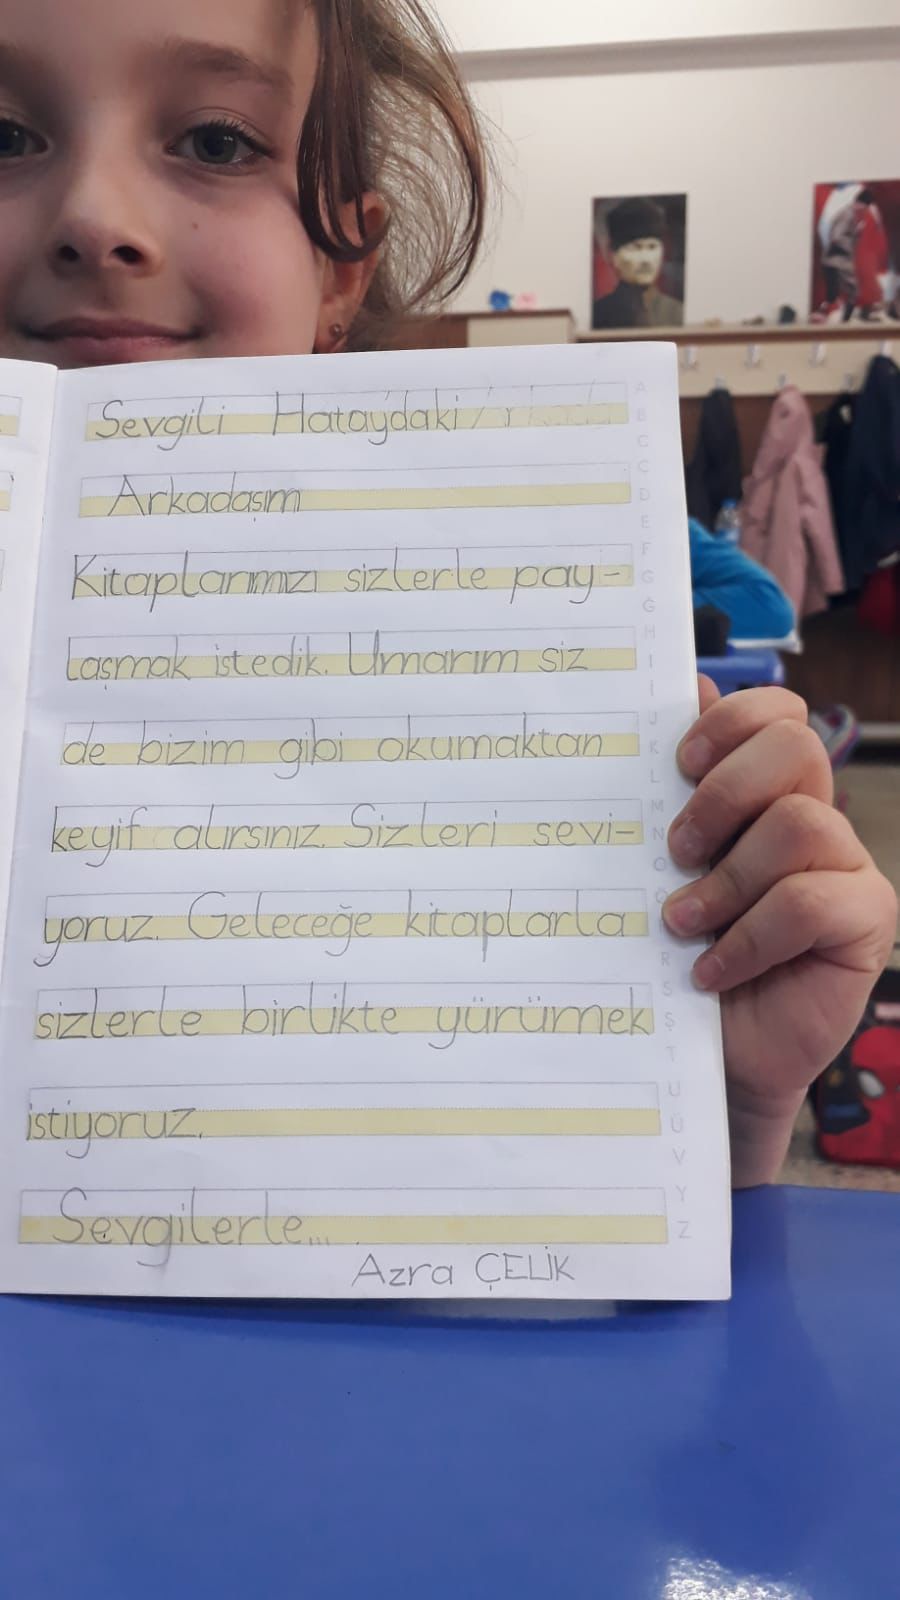 Sevgili Hatay'daki
Arkadaşım
Kitaplarımızı sizlerle pay-
laşmak istedik. Umarım siz
de bizim gibi okumaktan
keyif alırsınız. Sizleri sevi-
yoruz. Geleceğe kitaplarla
sizlerle birlikte yürümek
istiyoruz.
Sevgilerle...
Azra ÇELİK
A
B
C
Ç
D
E
F
G
Ğ
H
I
İ
J
K
L
M
N
O
Ö
R
S
Ş
T
U
Ü
V
Y
Z